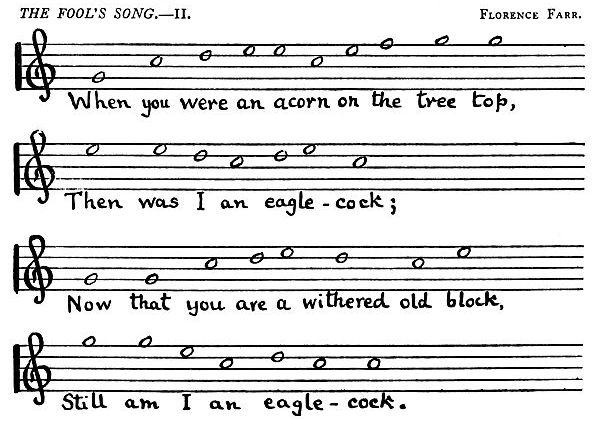 THE FOOL'S SONG.—II. FLORENCE FARR.
When you were an acorn on the tree top,
Then was I an eagle-cock;
Now that you are a withered old block,
Still am I an eagle-cock.